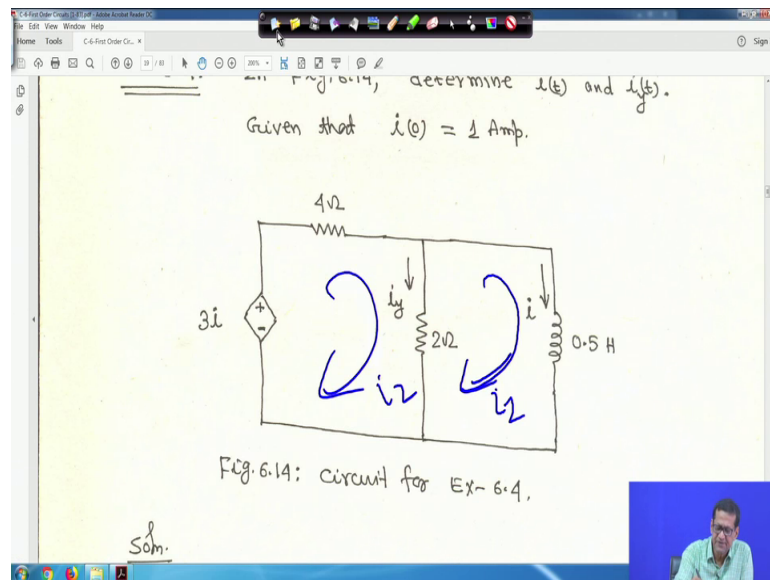 C-6-First Order Circuits [1-83].pdf - Adobe Acrobat Reader DC
File Edit View Window Help
Home Tools C-6-First Order Cir... × Sign
19 / 83 200%
In Fig. 6.14, determine i(t) and iy(t).
Given that i(0) = 1 Amp.
4Ω
3i
+
-
iy
2Ω
i
0.5 H
i2
i2
Fig. 6.14: Circuit for Ex- 6.4.
Soln.